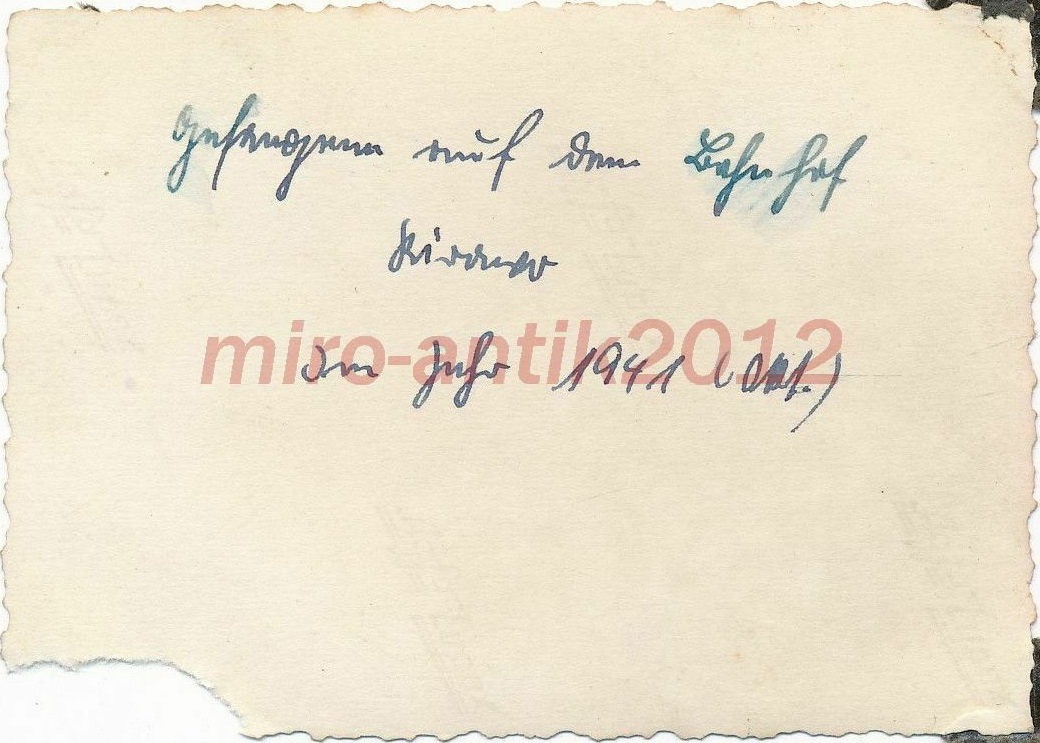 Gefangene auf dem Bahnhof
im Jahr 1941 (Okt.)
miro-antik2012